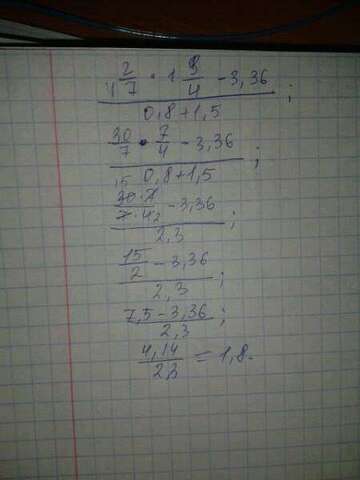 4 2/7 · 1 3/4 - 3,36 ;
0,8 + 1,5
30/7 · 7/4 - 3,36 ;
0,8 + 1,5
15
30 · 7 / 7 · 4 2 - 3,36 ;
2,3
15/2 - 3,36 ;
2,3
7,5 - 3,36 ;
2,3
4,14 / 2,3 = 1,8.